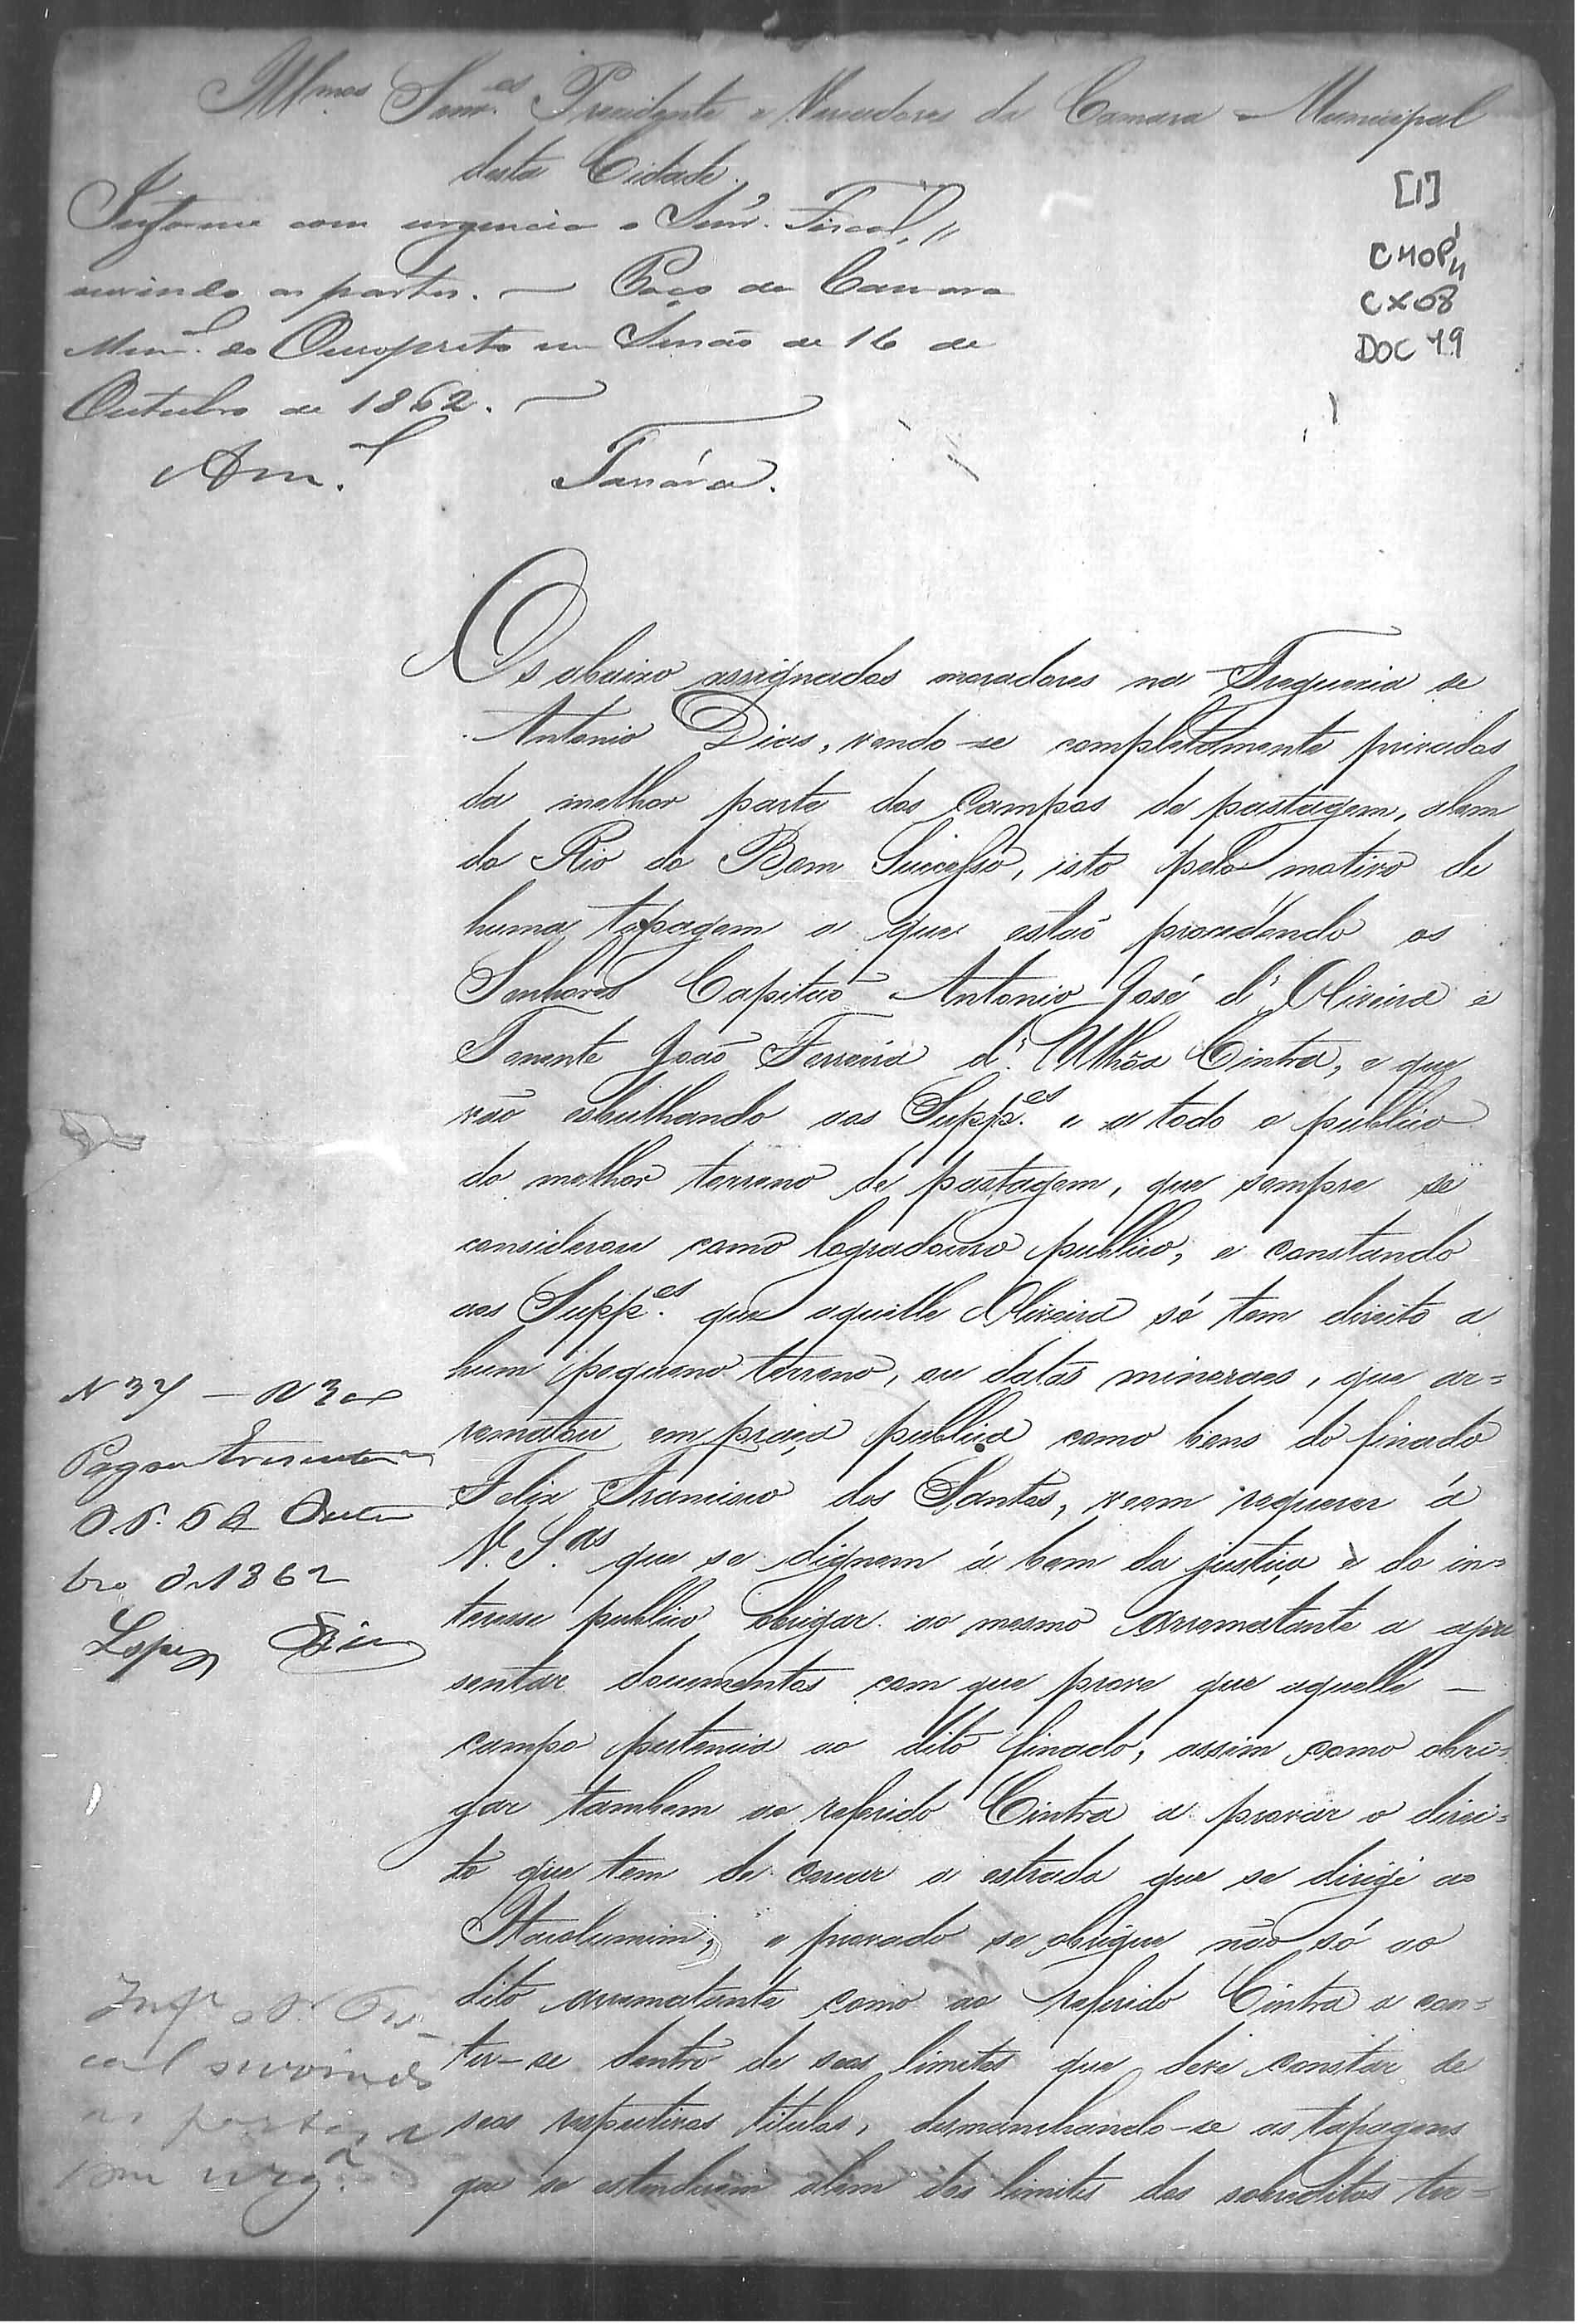 Ill.mos Senr.es Presidente e Vereadores da Camara Municipal
desta Cidade.
[1]
CMOP
CX08
DOC 49
Informe com urgencia o Senr. Fiscal,
ouvindo as partes. — Paço da Camara
Mun.l do Ouropreto em Sessão de 16 de
Outubro de 1862. —
Am.l
Os abaixo assignados moradores na Freguezia de
Antonio Dias, vendo-se completamente privados
da melhor parte dos Campos de pastagem, alem
do Rio do Bom Successo, isto pelo motivo de
huma tapagem a que estão procedendo os
Senhores Capitão Antonio José d'Oliveira e
Tenente João Ferreira d'Ulhôa Cintra, e que
vão esbulhando aos Supp.es e a todo o publico
do melhor terreno de pastagem, que sempre se
considerou como logradouro publico, e constando
aos Supp.es que aquelle Oliveira só tem direito a
hum pequeno terreno, ou datas mineraes, que ar=
rematou em praça publica como bens do finado
Felix Francisco dos Santos, veem requerer á
V. S.as que se dignem á bem da justiça e do in=
teresse publico obrigar ao mesmo arrematante a apre
sentar documentos com que prove que aquelle —
campo pertencia ao dito finado, assim como obri=
gar tambem ao referido Cintra a provar o direi=
to que tem de cercar a estrada que se dirige ao
Itacolumim, e provado se obrigue não só ao
dito arrematante como ao referido Cintra a con=
ter-se dentro de seos limites que deve constar de
seos respectivos titulos, desmanchando-se as tapagens
que se estenderem alem dos limites dos sobreditos ter=
N 37 —
Pagou tresentos
O. P. Outu
bro d 1862
Lopes
Inf.e o Sr. Fis-
cal ouvindo
as partes, e
com urg.a